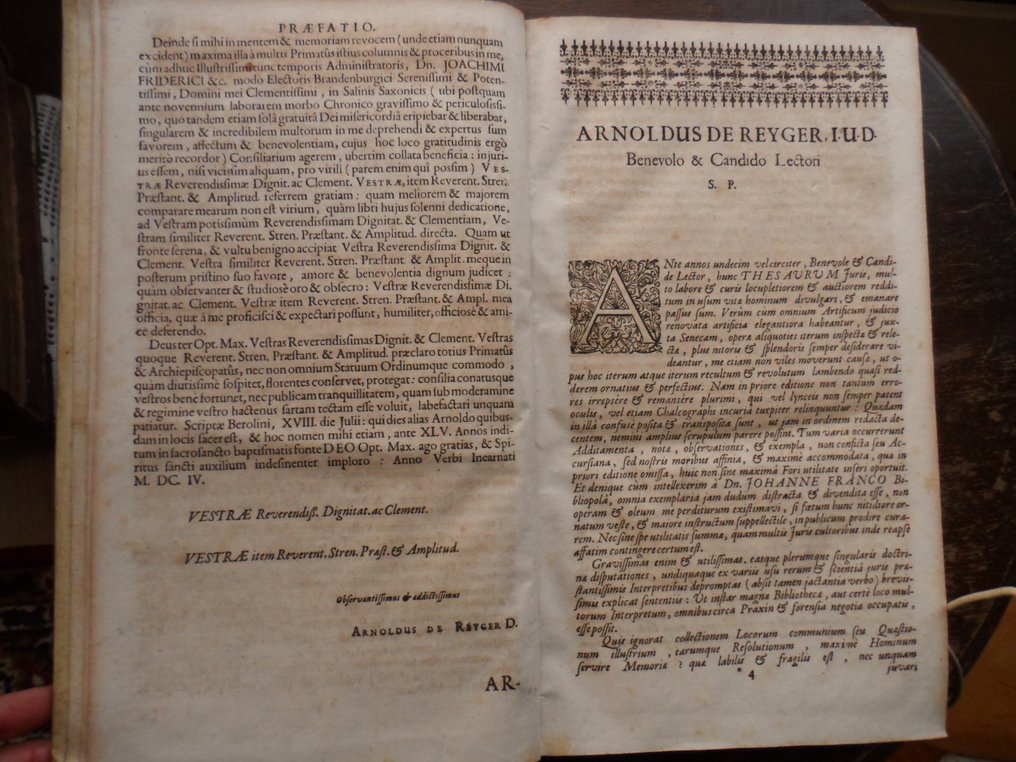 PRÆFATIO.
Deinde si mihi in mentem & memoriam revocem (unde etiam nunquam
excident) maxima illa à multis Primatus istius columnis & proceribus in me,
cum adhuc Illustrissimus tunc temporis Administratoris, Dn. JOACHIMI
FRIDERICI &c. modo Electoris Brandenburgici Serenissimi & Poten-
tissimi, Domini mei Clementissimi, in Salinis Saxonicis (ubi postquam
ante novennium laboratem morbo Chronico gravissimo & periculosissi-
mo, quo tandem etiam solâ gratuitâ Dei misericordiâ eripiebar & liberabar,
singularem & incredibilem multorum in me deprehendi & expertus sum
favorem, affectum & benevolentiam, cujus hoc loco gratitudinis ergò
meritò recordor) Consiliarium agerem, ubertim collata beneficia: injuri-
us essem, nisi vicissim aliquam, pro virili (parem enim qui possim) VES-
TRÆ Reverendissimæ Dignit. ac Clement. VESTRÆ, item Reverent. Stren.
Præstant. & Amplitud. referrem gratiam: quam meliorem & majorem
comparare mearum non est virium, quàm libri hujus solenni dedicatione,
ad Vestram potissimùm Reverendissimam Dignitat. & Clementiam, Ve-
stram similiter Reverent. Stren. Præstant. & Amplitud. directa. Quam ut
fronte serena, & vultu benigno accipiat Vestra Reverendissima Dignit. &
Clement. Vestra similiter Reverent. Stren. Præstant. & Amplit. meque in
posterum pristino suo favore, amore & benevolentia dignum judicet:
quam observanter & studiosè oro & obsecro: Vestræ Reverendissimæ Di-
gnitat. ac Clement. Vestræ item Reverent. Stren. Præstant. & Ampl. mea
officia, quæ à me proficisci & expectari possunt, humiliter, officiosè & ami-
cè deferendo.
Deus ter Opt. Max. Vestras Reverendissimas Dignit. & Clement. Vestras
quoque Reverent. Stren. Præstant. & Amplitud. præclaro totius Primatûs
& Archiepiscopatûs, nec non omnium Statuum Ordinumque commodo,
quam diutissimè sospitet, florentes conservet, protegat: consilia conatusque
vestros bene fortunet, nec publicam tranquillitatem, quam sub moderamine
& regimine vestro hactenus sartam tectam esse voluit, labefactari unquam
patiatur. Scriptæ Berolini, XVIII. die Julii: qui dies alias Arnoldo quibus-
dam in locis sacer est, & hoc nomen mihi etiam, ante XLV. Annos indi-
tum in sacrosancto baptismatis fonte DEO Opt. Max. ago gratias, & Spi-
ritus sancti auxilium indesinenter imploro: Anno Verbi Incarnati
M. DC. IV.
VESTRÆ Reverendiss. Dignitat. ac Clement.
VESTRÆ item Reverent. Stren. Præst. & Amplitud.
Observantissimus & addictissimus
ARNOLDUS DE REYGER D.
AR-
ARNOLDUS DE REYGER, I.U.D.
Benevolo & Candido Lectori
S. P.
ANte annos undecim vel circiter, Benevole & Candi-
de Lector, hunc THESAURUM Juris, mul-
to labore & curis locupletiorem & auctiorem reddi-
tum in usum vitæ hominum divulgari, & emanare
passus sum. Verùm cum omnium Artificum judicio
renovata artificia elegantiora habeantur, & jux-
ta Senecam, operæ aliquoties iterum inspectæ & rele-
ctæ, plus nitoris & splendoris semper desiderare vi-
deantur, me etiam non viles moverunt causæ, ut o-
pus hoc iterum atque iterum recultum & revolutum lambendo quasi red-
derem ornatius & perfectius. Nam in priore editione non tantum erro-
res irrepsère & remansère plurimi, qui vel lynceis non semper patent
oculis, vel etiam Chalcographi incuria turpiter relinquuntur: Quædam
in illa confusè posita & transposita sunt, ut jam in ordinem redacta de-
centem, nemini amplius scrupulum parere possint. Tum varia occurrerunt
Additamenta, notæ, observationes, & exempla, non conficta seu Ac-
cursiana, sed nostris moribus affinia, & maximè accommodata, quæ in
priori editione omissa, huic non sine maximâ Fori utilitate inseri oportuit.
Et denique cum intellexerim à Dn. JOHANNE FRANCO Bi-
bliopolâ, omnia exemplaria jam dudum distracta & divendita esse, non
operam & oleum me perditurum existimavi, si fœtum hunc nitidiore or-
natum veste, & majore instructum suppellectile, in publicum prodire cura-
rem. Nec sine spe utilitatis summæ, quam multis Juris cultoribus inde reapse
affatim contingere certum est.
Gravissimas enim & utilissimas, easque plerumque singularis doctri-
næ disputationes, undiquaque ex variis usu rerum & scientiâ juris præ-
stantissimis Interpretibus depromptas (absit tamen jactantia verbo) brevis-
simis explicat sententiis: Ut instar magnæ Bibliothecæ, aut certè loco mul-
torum Interpretum, omnibus circa Praxin & forensia negotia occupatis,
esse possit.
Quis ignorat collectionem Locorum communium seu Quæstio-
num illustrium, earumque Resolutionum, maximè Hominum
servire Memoriæ? quæ labilis & fragilis est, nec unquam
* 4
juvari